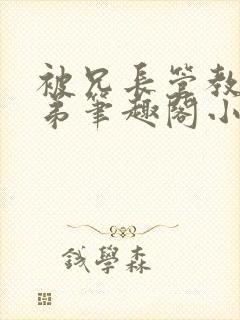 被兄长管教
弟筆趣閣小
錢學森